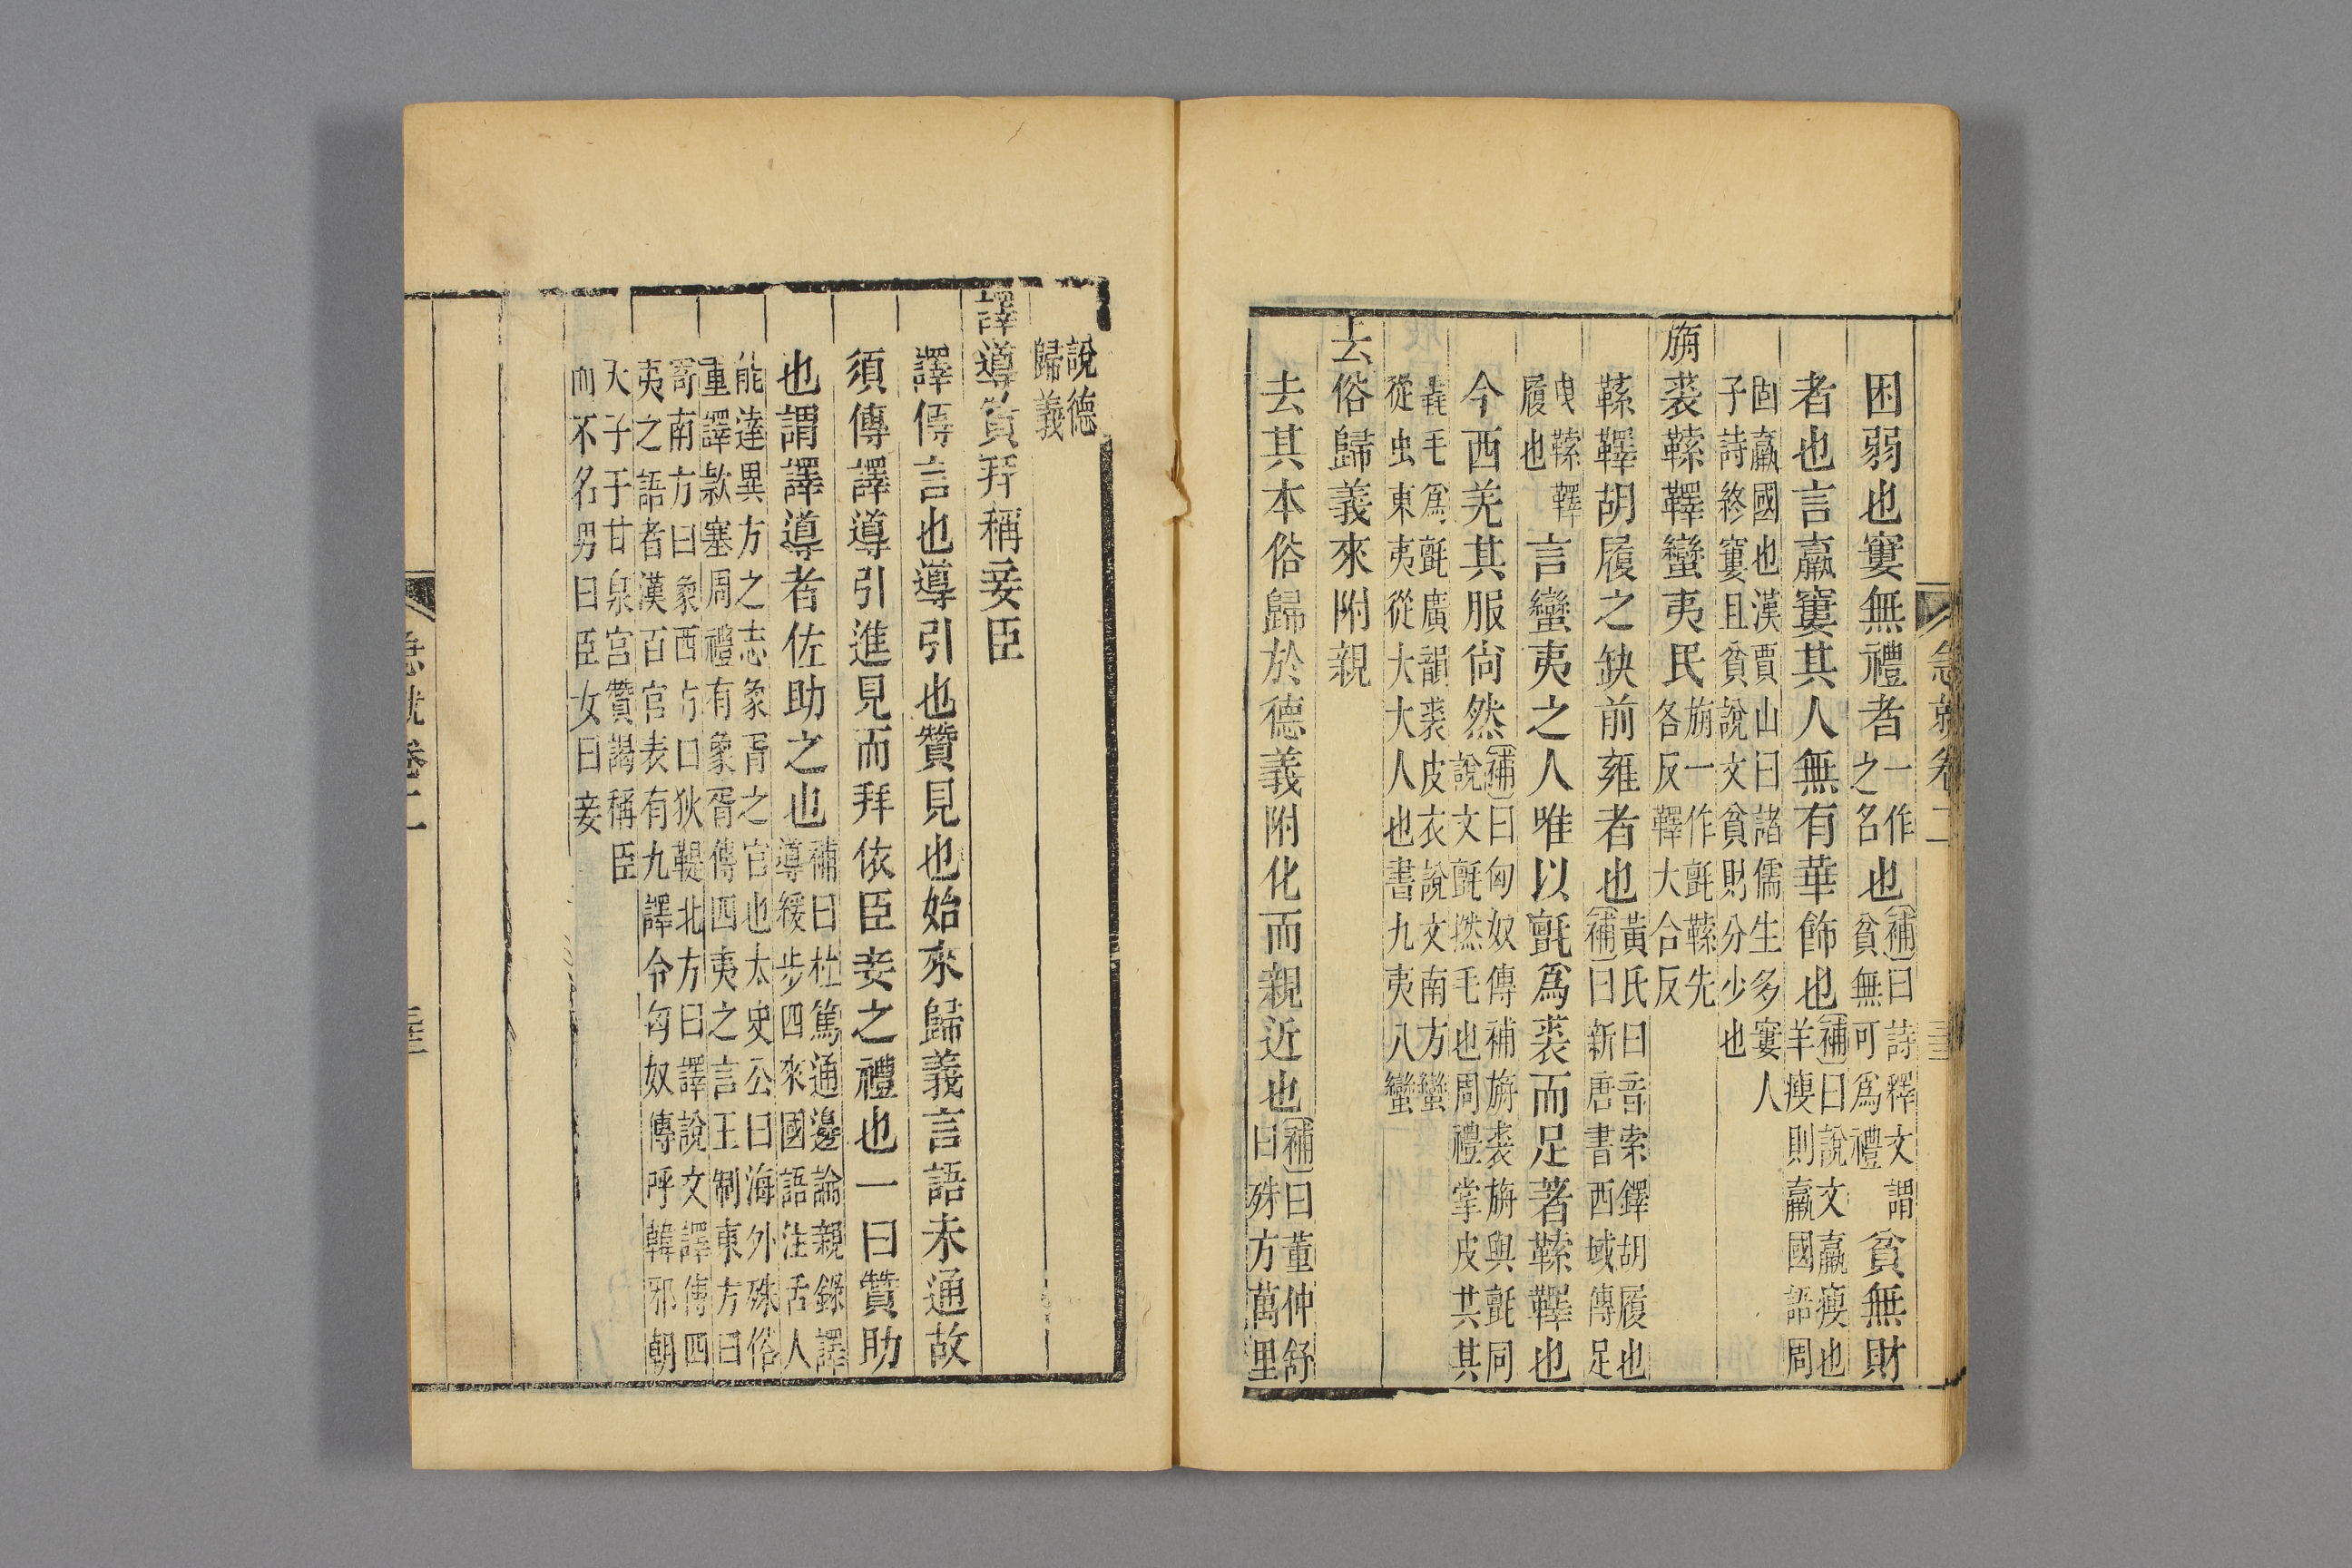 急就卷二
困弱也窶無禮者一作之名也補曰詩釋文謂貧無可爲禮貧無財
者也言羸窶其人無有華飾也補曰說文羸瘦也羊瘦則羸國語周
固羸國也漢賈山曰諸儒生多窶人子詩終窶且貧說文貧財分少也
旃裘䩱鞮蠻夷民旃一作氈䩱先各反鞮大合反
䩱鞮胡履之缺前雍者也黃氏曰音索鐸胡履也補曰新唐書西域傳足
曳䩱鞮履也言蠻夷之人唯以氈爲裘而足著䩱鞮也
今西羌其服尙然補曰匈奴傳補旃裘旃與氈同說文氈撚毛也周禮掌皮共其
毳毛爲氈廣韻裘皮衣說文南方蠻從虫東夷從大大人也書九夷八蠻
去俗歸義來附親
去其本俗歸於德義附化而親近也補曰董仲舒曰殊方萬里
說德歸義
譯導贊拜稱妾臣
譯傳言也導引也贊見也始來歸義言語未通故
須傳譯導引進見而拜依臣妾之禮也一曰贊助
也謂譯導者佐助之也補曰杜篤通邊論親錄譯導緩步四來國語注舌人
能達異方之志象胥之官也太史公曰海外殊俗重譯款塞周禮有象胥傳四夷之言王制東方曰
寄南方曰象西方曰狄鞮北方曰譯說文譯傳四夷之語者漢百官表有九譯令匈奴傳呼韓邪朝
天子于甘泉宫贊謁稱臣而不名男曰臣女曰妾
急就卷二